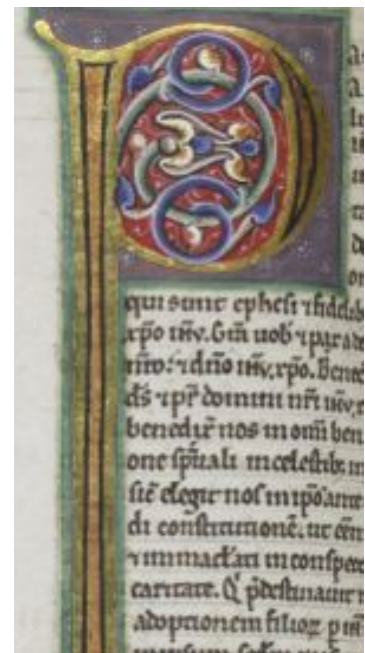 P
qui sunt ephesi ⁊ fidelib
xp̄o ih̄v. Gr̄a uob ⁊ pax a
nr̄o. ⁊ dn̄o ih̄v. xp̄o. Bened
d̄s ⁊ pr̄ domini nr̄i ih̄v.
benedix̄ nos in om̄i ben
one sp̄itali in celestib; in
sic̄ elegit nos in ip̄o ante
di constitutionē. ut eēm
⁊ immac̄lati in conspec
caritate. Q̇ p̄destinauit
adoptionem filioꝝ p ih̄